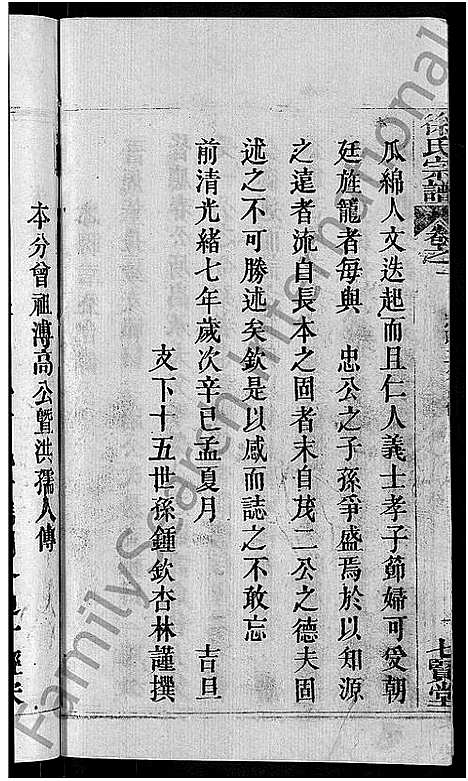 徐氏宗譜
卷之一
七賢堂
瓜綿人文迭起而且仁人義士孝子節婦可受朝
廷旌寵者每與 忠公之子孫爭盛焉於以知源
之遠者流自長本之固者末自茂二公之德夫固
述之不可勝述矣欽是以咸而誌之不敢忘
前清光緒七年歲次辛巳孟夏月 吉旦
支下十五世孫鍾欽杏林謹撰
本分曾祖溥高公暨洪孺人傳
FamilySearch International